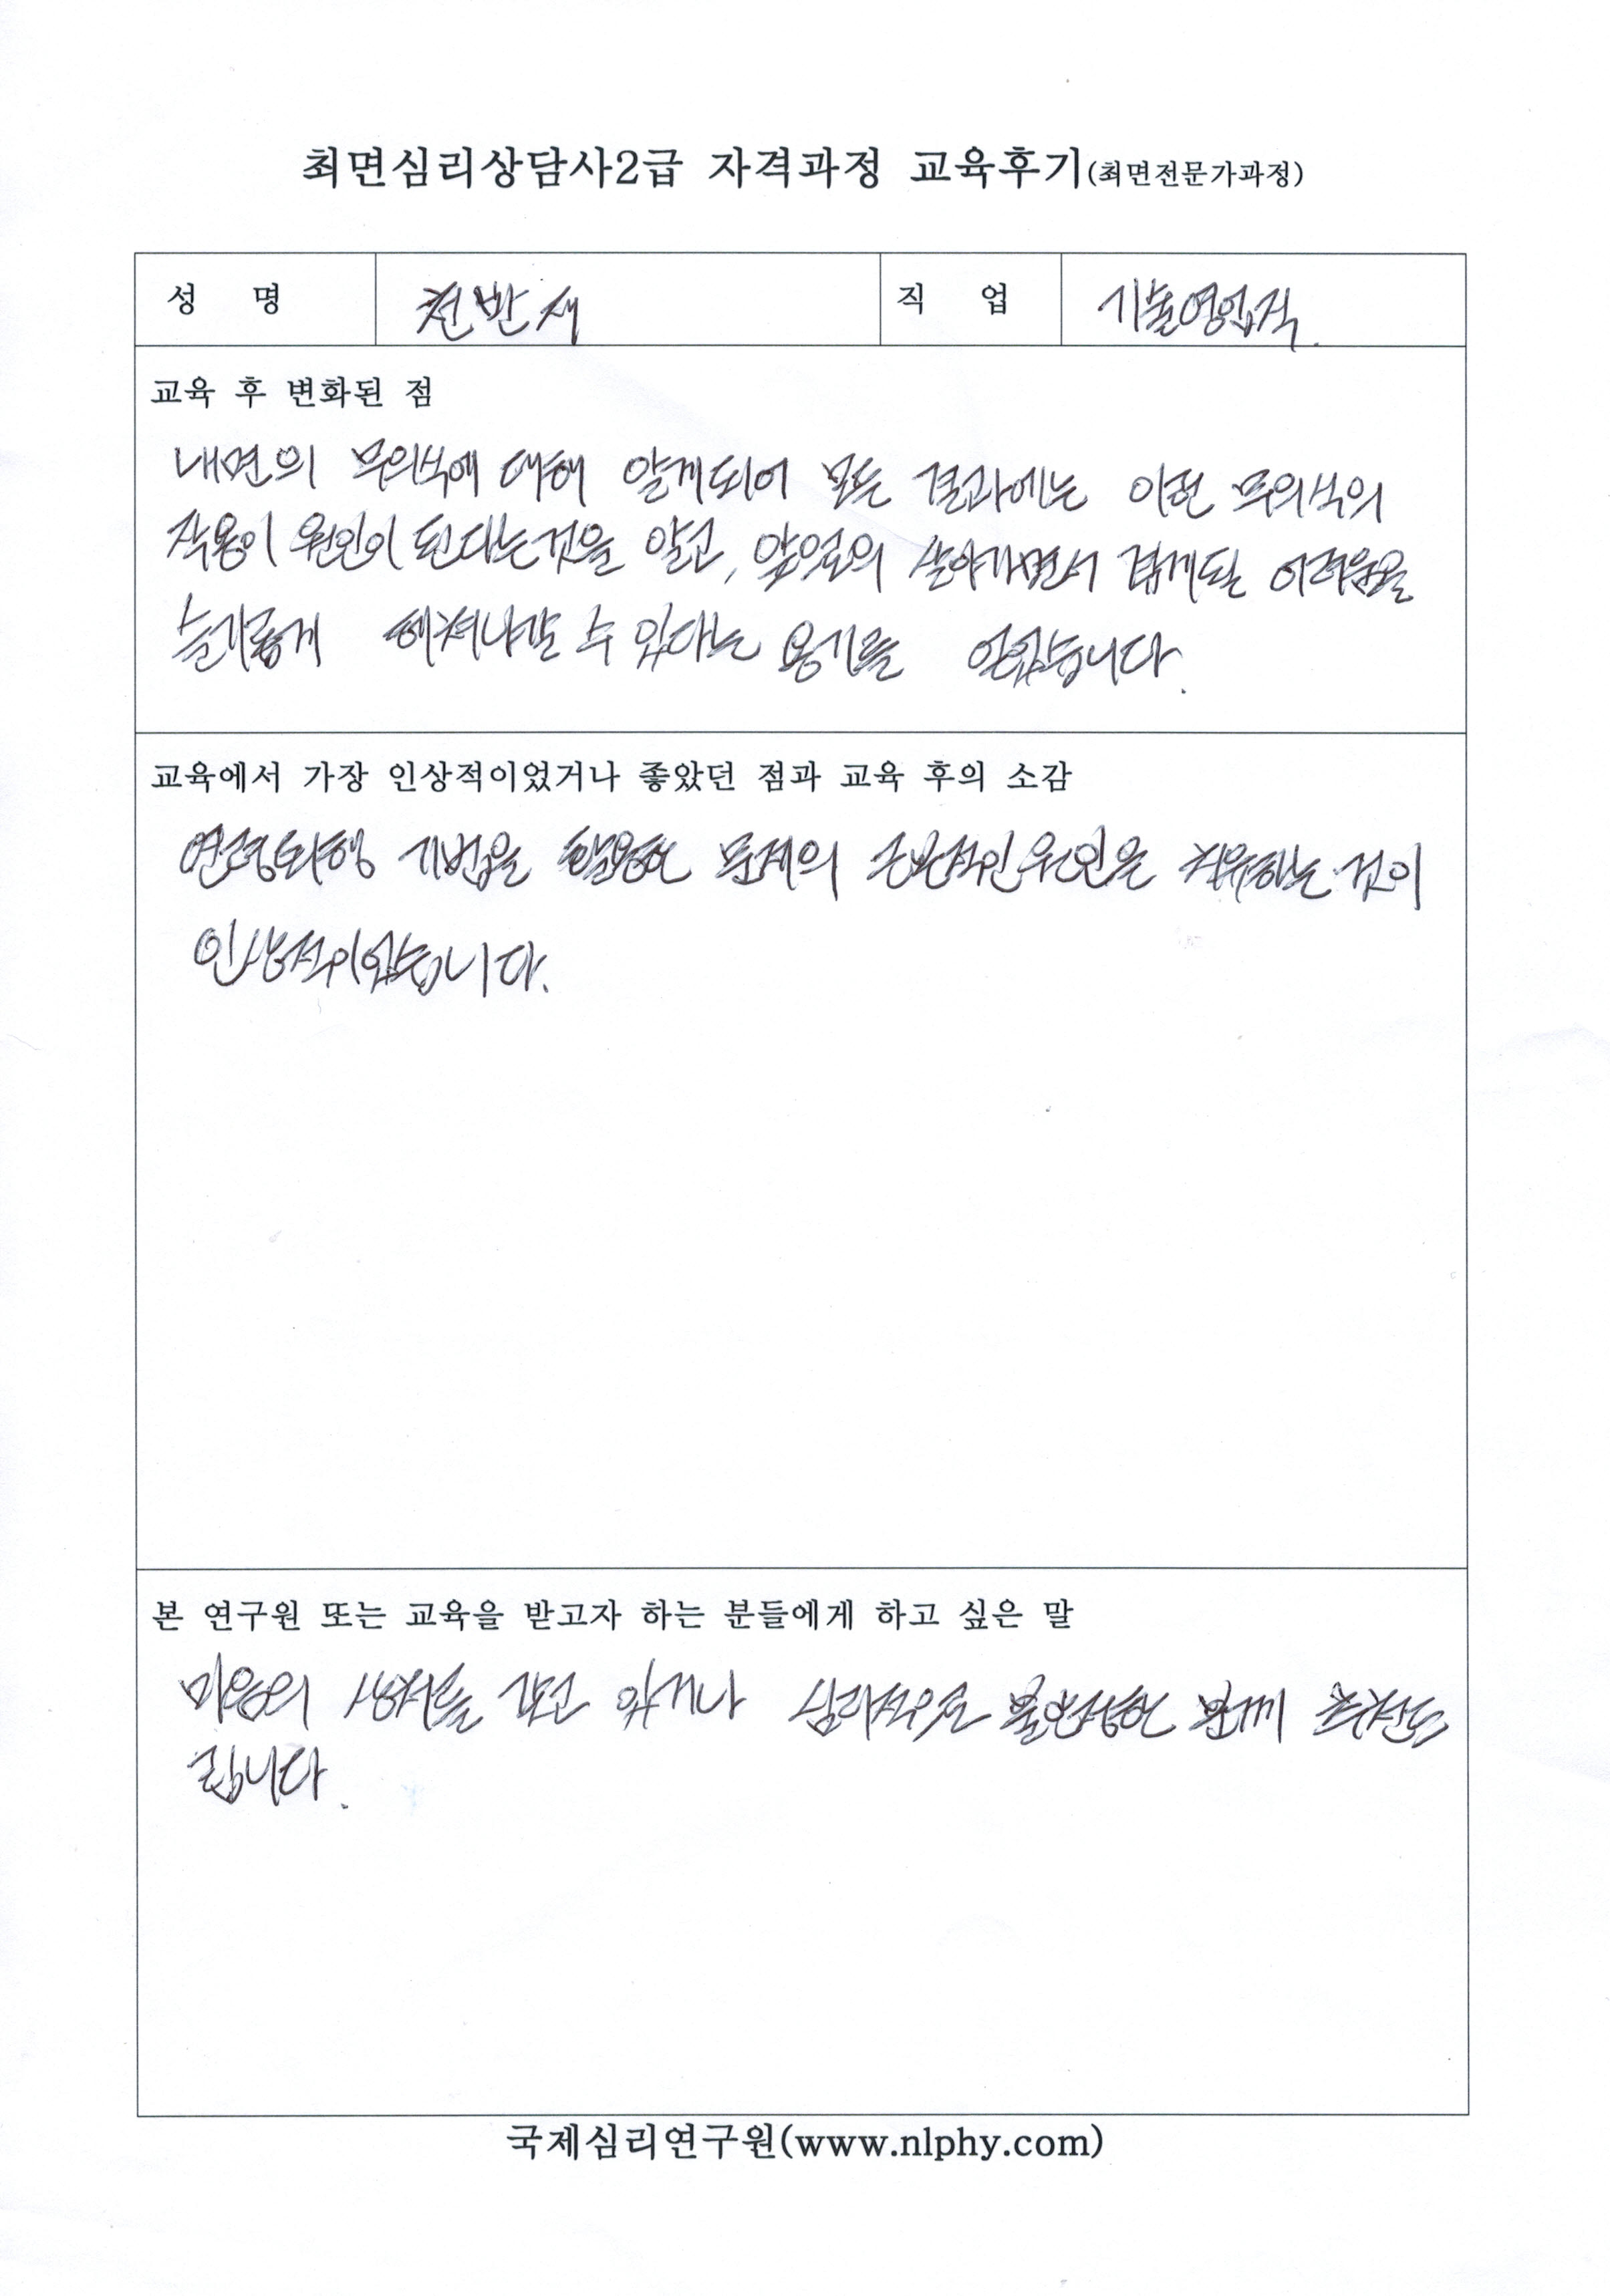 최면심리상담사2급 자격과정 교육후기(최면전문가과정)
성 명 천반재 직 업 기술영업직.
교육 후 변화된 점
내면의 무의식에 대해 알게되어 모든 결과에는 이런 무의식의
작용이 원인이 된다는것을 알고, 앞으로의 살아가면서 겪게될 어려움을
슬기롭게 헤쳐나갈 수 있다는 용기를 얻었습니다.
교육에서 가장 인상적이었거나 좋았던 점과 교육 후의 소감
연령퇴행 기법을 활용한 문제의 근본적인 원인을 치유하는 것이
인상적이었습니다.
본 연구원 또는 교육을 받고자 하는 분들에게 하고 싶은 말
마음의 상처를 갖고 있거나 심리적으로 불안정한 분께 추천드
립니다.
국제심리연구원(www.nlphy.com)